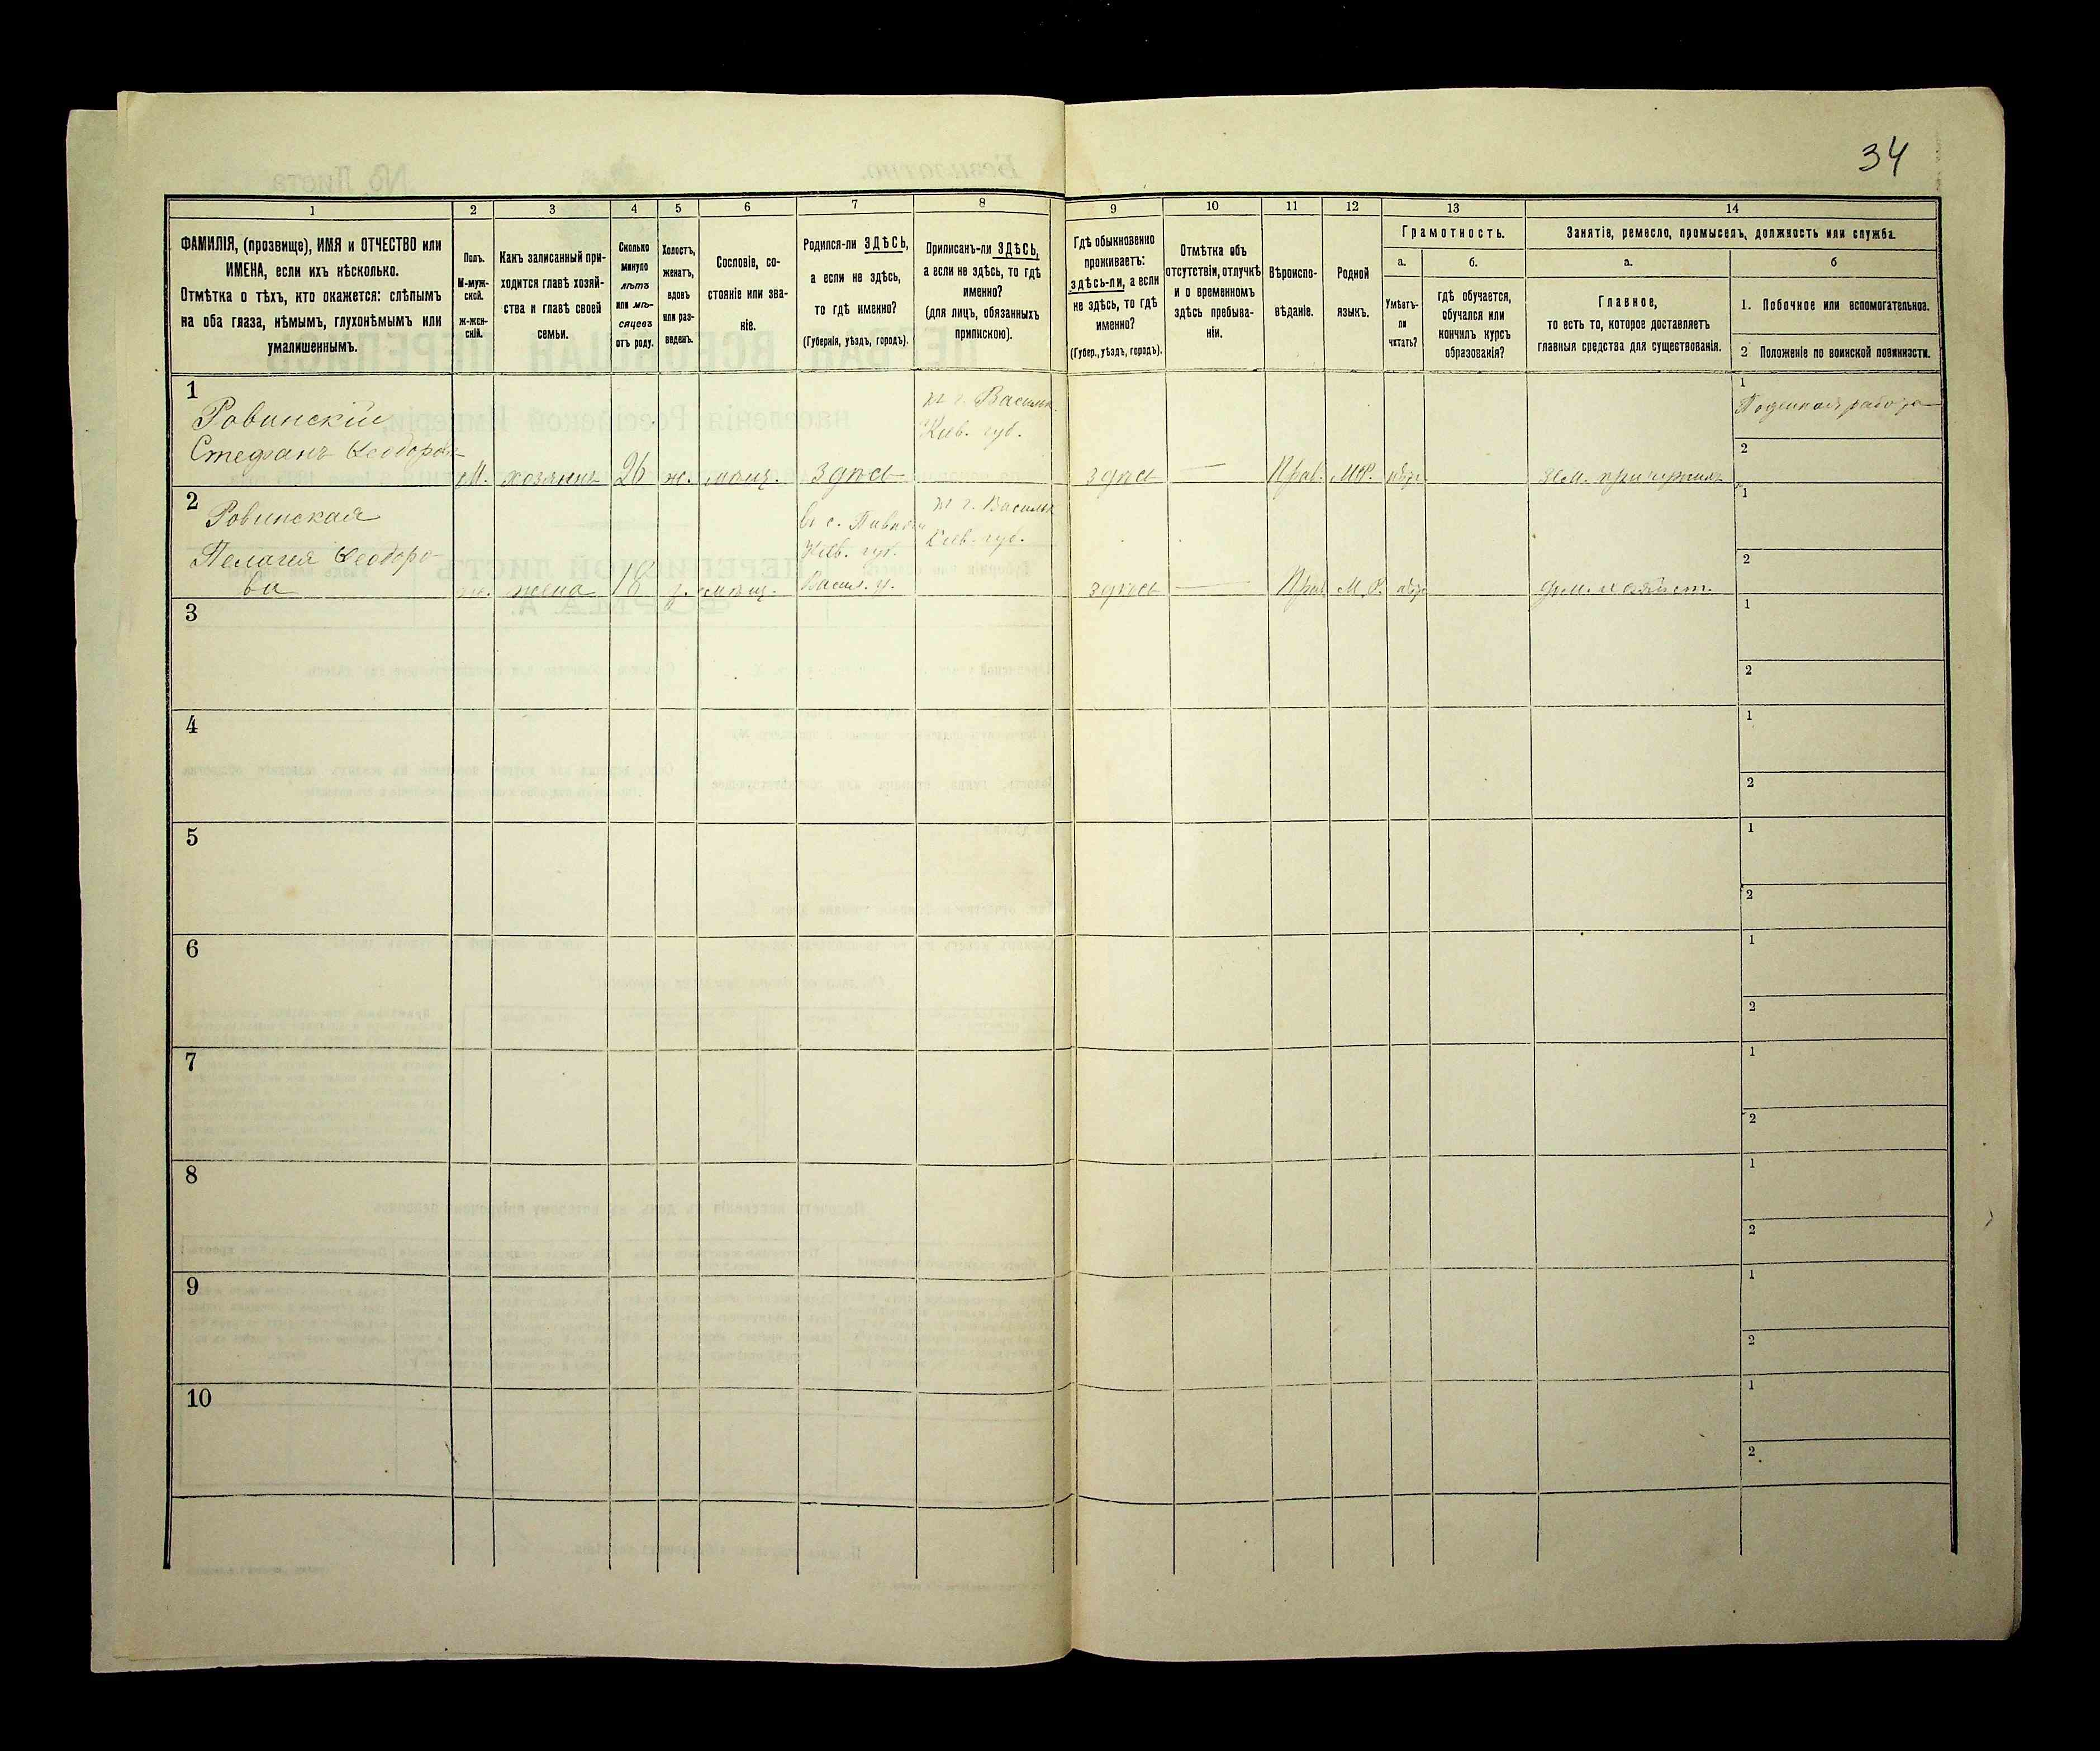 34
1
2
3
4
5
6
7
8
9
10
11
12
13
14
ФАМИЛІЯ, (прозвище), ИМЯ и ОТЧЕСТВО или
ИМЕНА, если ихъ нѣсколько.
Отмѣтка о тѣхъ, кто окажется: слѣпымъ
на оба глаза, нѣмымъ, глухонѣмымъ или
умалишеннымъ.
Полъ.
М-муж-
ской.
ж-жен-
скій.
Какъ записанный при-
ходится главѣ хозяй-
ства и главѣ своей
семьи.
Сколько
минуло
лѣтъ
или мѣ-
сяцевъ
отъ роду.
Холостъ,
женатъ,
вдовъ
или раз-
веденъ.
Сословіе, со-
стояніе или зва-
ніе.
Родился-ли ЗДѢСЬ,
а если не здѣсь,
то гдѣ именно?
(Губернія, уѣздъ, городъ).
Приписанъ-ли ЗДѢСЬ,
а если не здѣсь, то гдѣ
именно?
(для лицъ, обязанныхъ
припискою).
Гдѣ обыкновенно
проживаетъ:
здѣсь-ли, а если
не здѣсь, то гдѣ
именно?
(Губер., уѣздъ, городъ).
Отмѣтка объ
отсутствіи, отлучкѣ
и о временномъ
здѣсь пребыва-
ніи.
Вѣроиспо-
вѣданіе.
Родной
языкъ.
Грамотность.
а.
Умѣетъ-
ли
читать?
б.
гдѣ обучается,
обучался или
кончилъ курсъ
образованія?
Занятіе, ремесло, промыселъ, должность или служба.
а.
Главное,
то есть то, которое доставляетъ
главныя средства для существованія.
б
1. Побочное или вспомогательное.
2 Положеніе по воинской повинности.
1
Ровинскій
Стефанъ Ѳеодоровъ
М. хозяинъ 26 ж. мѣщ. здѣсь
къ г. Васильк.
Кіев. губ.
здѣсь — Прав. МР. нѣтъ
1
Поденная работа
2
2
Ровинская
Пелагея Ѳеодоро-
ва
ж. жена 18 з. мѣщ.
Кіев. губ.
Васил. у.
къ г. Васильк
Кіев. губ.
здѣсь — Прав. М.Р. нѣтъ
дом. хозяйст.
1
2
3
1
2
4
1
2
5
1
2
6
1
2
7
1
2
8
1
2
9
1
2
10
1
2